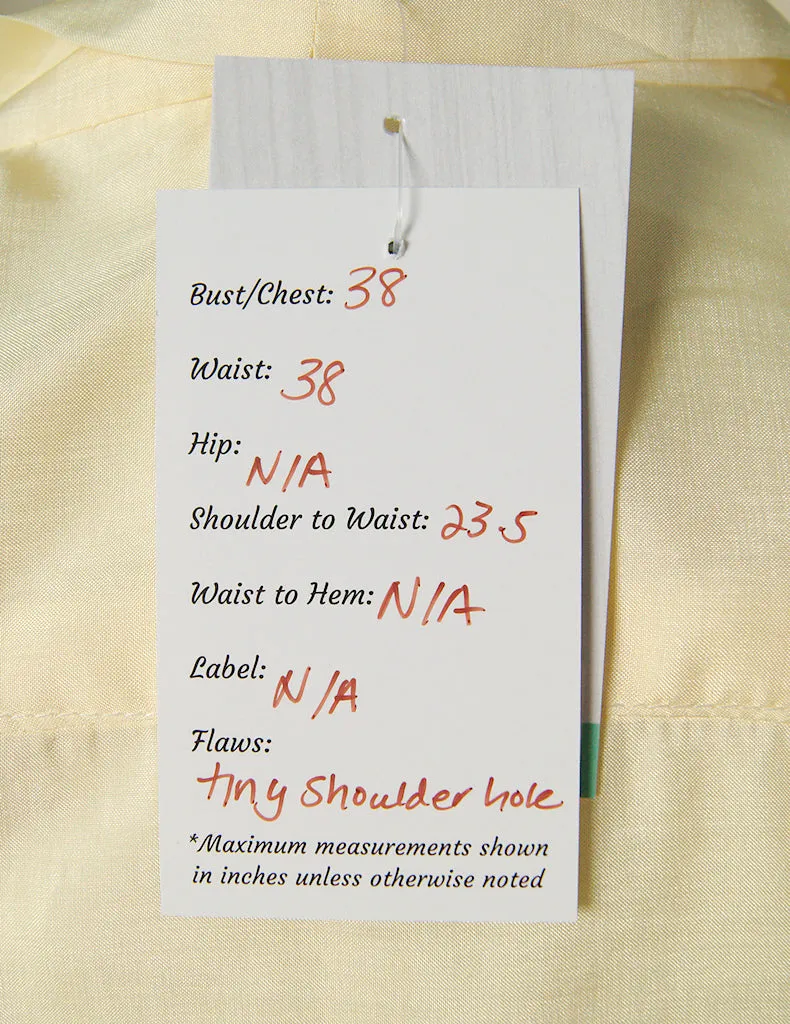 Bust/Chest: 38
Waist: 38
Hip: N/A
Shoulder to Waist: 23.5
Waist to Hem: N/A
Label: N/A
Flaws:
tiny shoulder hole
*Maximum measurements shown
in inches unless otherwise noted